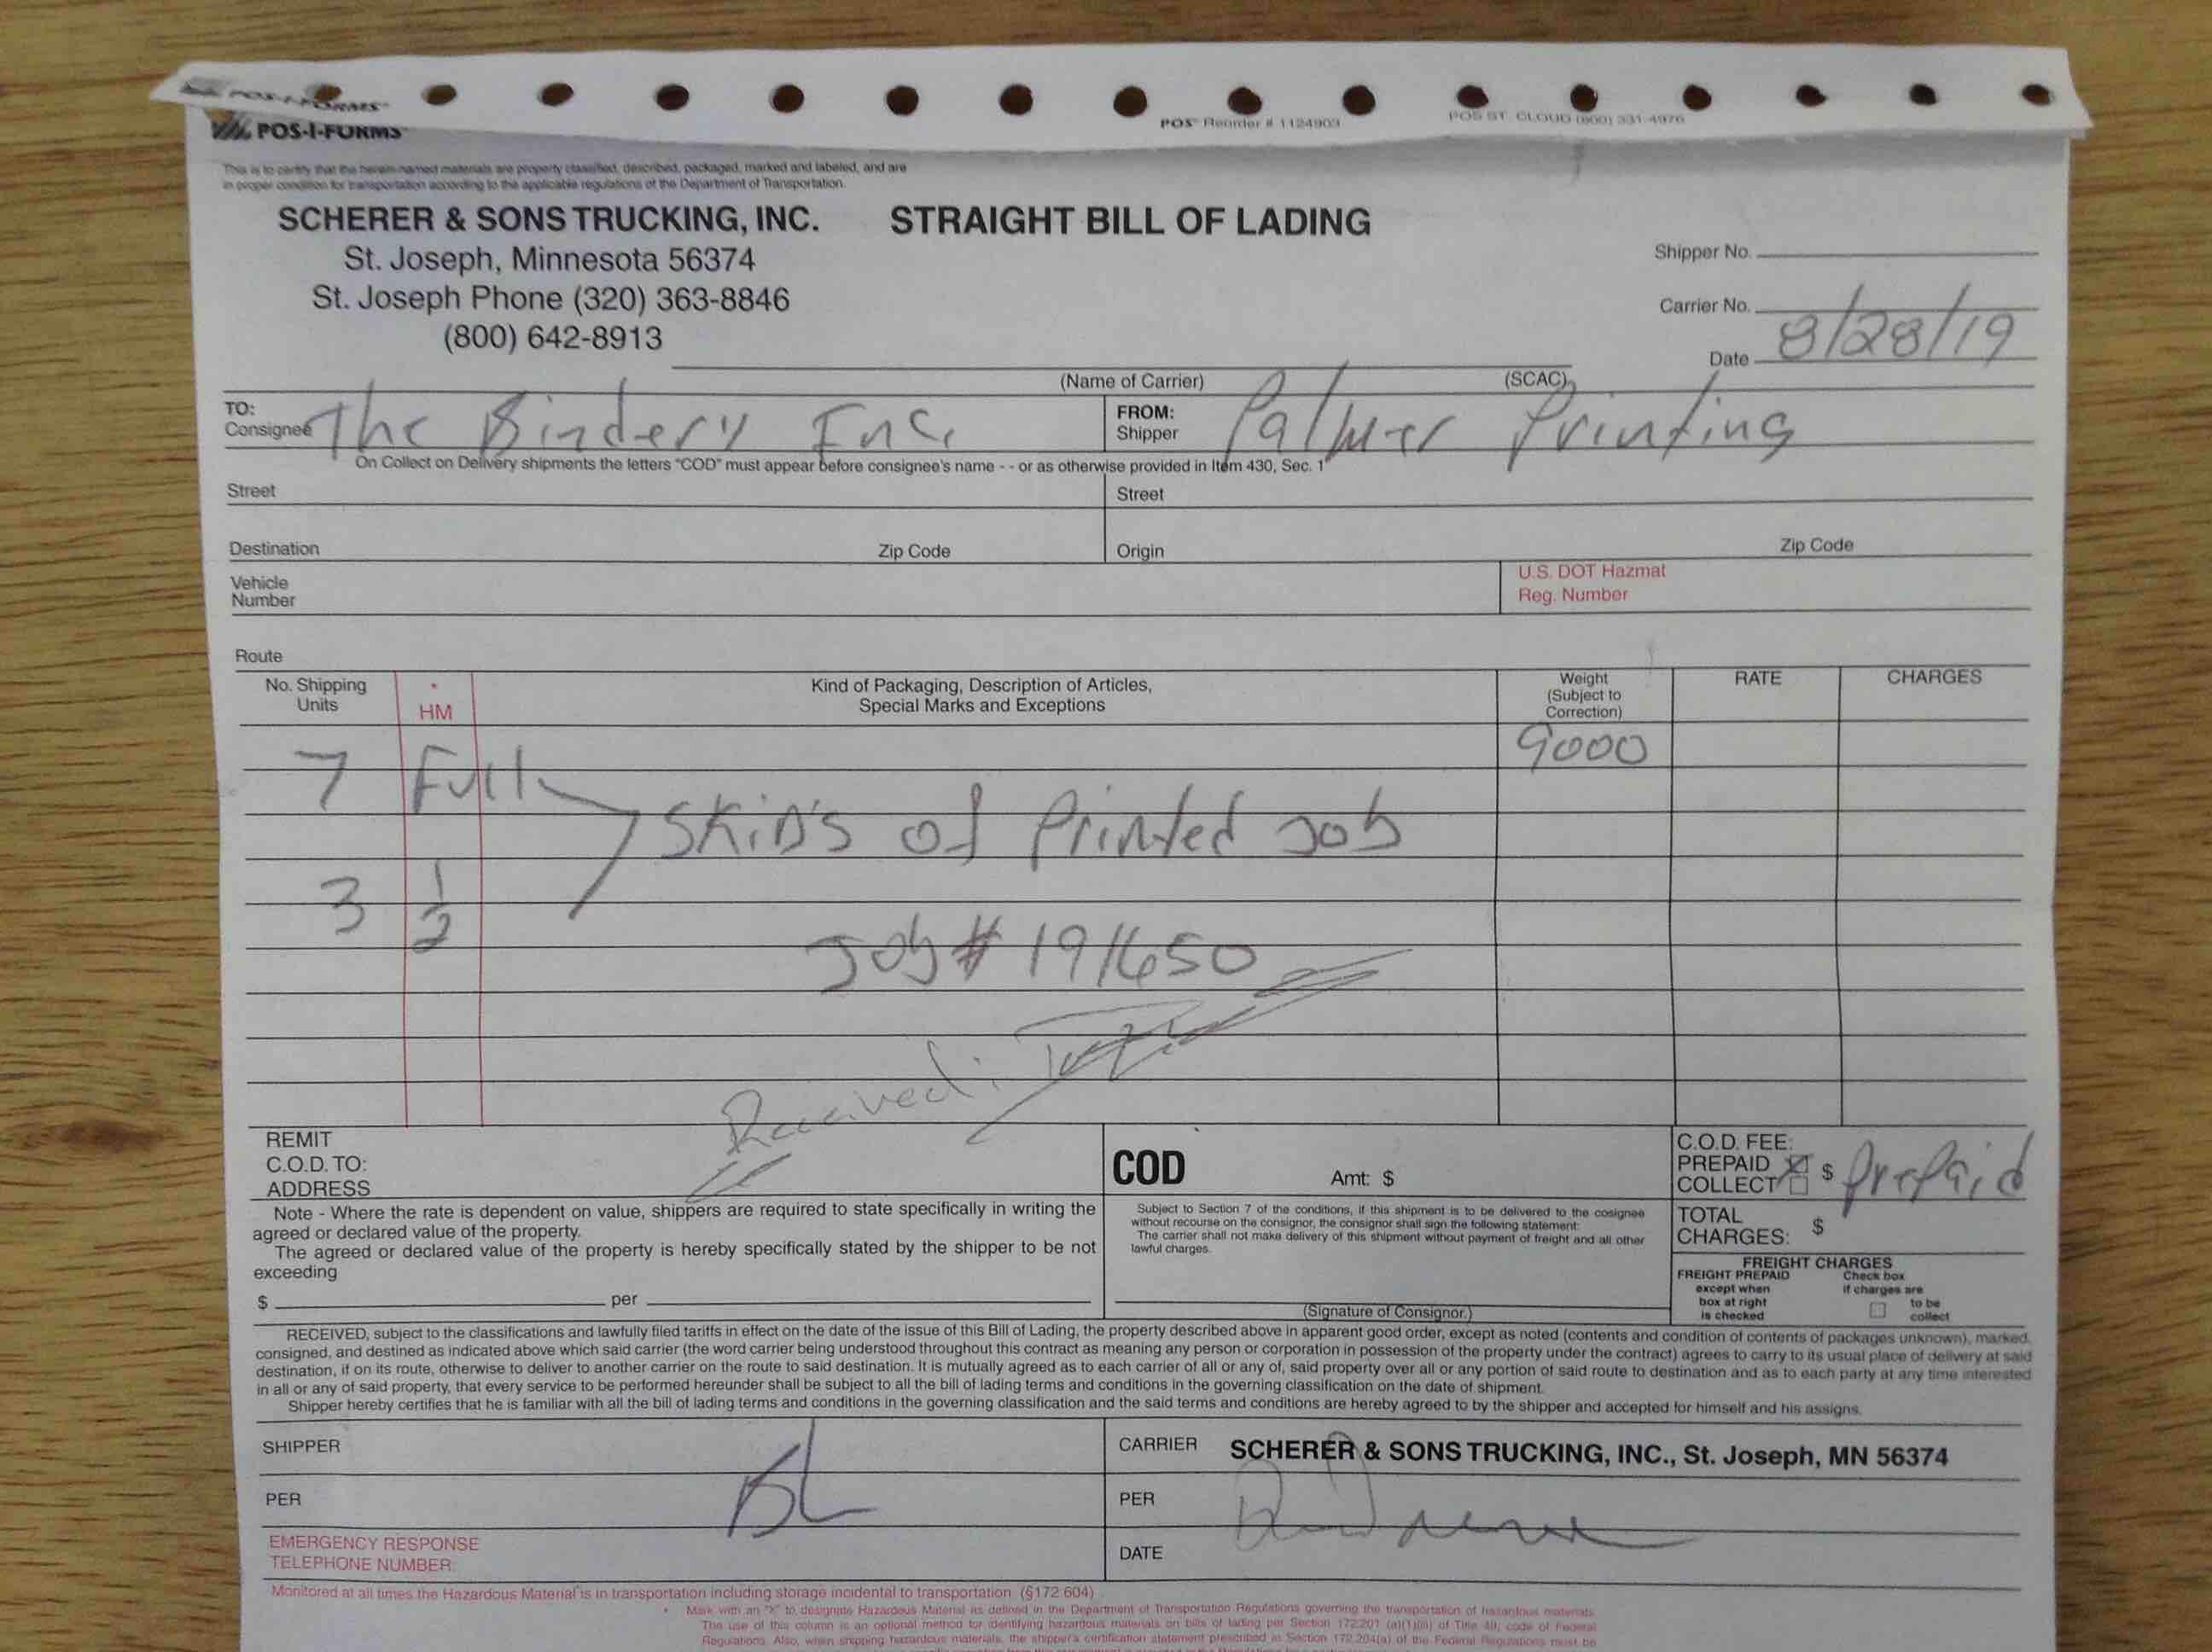 POS-I-FORMS
POS Reorder # 1124903 POS ST. CLOUD (800) 331-4976
POS-I-FORMS
This is to certify that the herein-named materials are properly classified, described, packaged, marked and labeled, and are
in proper condition for transportation according to the applicable regulations of the Department of Transportation.
SCHERER & SONS TRUCKING, INC. STRAIGHT BILL OF LADING
St. Joseph, Minnesota 56374
Shipper No.
St. Joseph Phone (320) 363-8846
Carrier No.
(800) 642-8913
Date 8/28/19
(Name of Carrier) (SCAC)
TO:
Consignee The Bindery Inc.
FROM:
Shipper Palmer Printing
On Collect on Delivery shipments the letters "COD" must appear before consignee's name - - or as otherwise provided in Item 430, Sec. 1
Street Street
Destination Zip Code Origin Zip Code
Vehicle
Number
U.S. DOT Hazmat
Reg. Number
Route
No. Shipping
Units
*
HM
Kind of Packaging, Description of Articles,
Special Marks and Exceptions
Weight
(Subject to
Correction)
RATE CHARGES
9000
7 Full
SkiD's of Printed Job
3 1/2
Job # 191650
Received:
REMIT
C.O.D. TO:
ADDRESS
COD Amt: $
C.O.D. FEE:
PREPAID
COLLECT
$ PrePaid
Note - Where the rate is dependent on value, shippers are required to state specifically in writing the
agreed or declared value of the property.
The agreed or declared value of the property is hereby specifically stated by the shipper to be not
exceeding
$ per
Subject to Section 7 of the conditions, if this shipment is to be delivered to the cosignee
without recourse on the consignor, the consignor shall sign the following statement:
The carrier shall not make delivery of this shipment without payment of freight and all other
lawful charges.
(Signature of Consignor.)
TOTAL
CHARGES: $
FREIGHT CHARGES
FREIGHT PREPAID
except when
box at right
is checked
Check box
if charges are
to be
collect
RECEIVED, subject to the classifications and lawfully filed tariffs in effect on the date of the issue of this Bill of Lading, the property described above in apparent good order, except as noted (contents and condition of contents of packages unknown), marked,
consigned, and destined as indicated above which said carrier (the word carrier being understood throughout this contract as meaning any person or corporation in possession of the property under the contract) agrees to carry to its usual place of delivery at said
destination, if on its route, otherwise to deliver to another carrier on the route to said destination. It is mutually agreed as to each carrier of all or any of, said property over all or any portion of said route to destination and as to each party at any time interested
in all or any of said property, that every service to be performed hereunder shall be subject to all the bill of lading terms and conditions in the governing classification on the date of shipment.
Shipper hereby certifies that he is familiar with all the bill of lading terms and conditions in the governing classification and the said terms and conditions are hereby agreed to by the shipper and accepted for himself and his assigns.
SHIPPER
CARRIER SCHERER & SONS TRUCKING, INC., St. Joseph, MN 56374
PER PER
EMERGENCY RESPONSE
TELEPHONE NUMBER:
DATE
Monitored at all times the Hazardous Material is in transportation including storage incidental to transportation (§172.604)
* Mark with an "X" to designate Hazardous Material as defined in the Department of Transportation Regulations governing the transportation of hazardous materials.
The use of this column is an optional method for identifying hazardous materials on bills of lading per Section 172.201 (a)(1)(iii) of Title 49, code of Federal
Regulations. Also, when shipping hazardous materials, the shipper's certification statement prescribed in Section 172.204(a) of the Federal Regulations must be